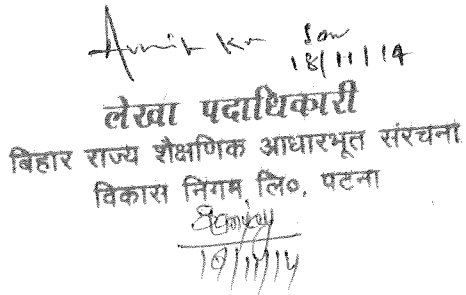 18/11/14
लेखा पदाधिकारी
बिहार राज्य शैक्षणिक आधारभूत संरचना
विकास निगम, लि०, पटना
18/11/14